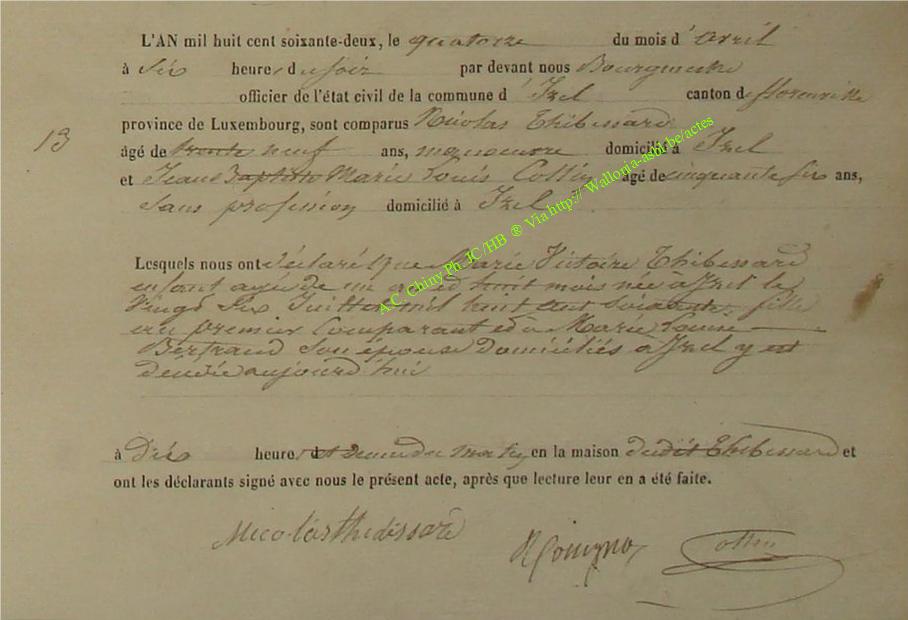 L'AN mil huit cent soixante-deux, le quatorze du mois d'avril
à Six heure, du Soir par devant nous Bourgmestre
officier de l'état civil de la commune d'Izel canton de florenville
13
province de Luxembourg, sont comparus Nicolas Thibessard
âgé de trente neuf ans, manoeuvre domicilié à Izel
et Jean Baptiste Marie Louis Collin âgé de cinquante six ans,
Sans profession domicilié à Izel
Lesquels nous ont déclaré que Marie Victoire Thibessard
enfant agée de un an et huit mois née à Izel le
Vingt Six Juillet mil huit cent Soixante, fille
du premier Comparant et de Marie
Bertrand Son épouse Domiciliés à Izel y est
décédée aujourd'hui
à Dix heure, et demie du matin en la maison dudit Thibessard et
ont les déclarants signé avec nous le présent acte, après que lecture leur en a été faite.
Collin
A.C. Chiny Ph. JC /HB ® Via http:// Wallonia-asbl.be/actes